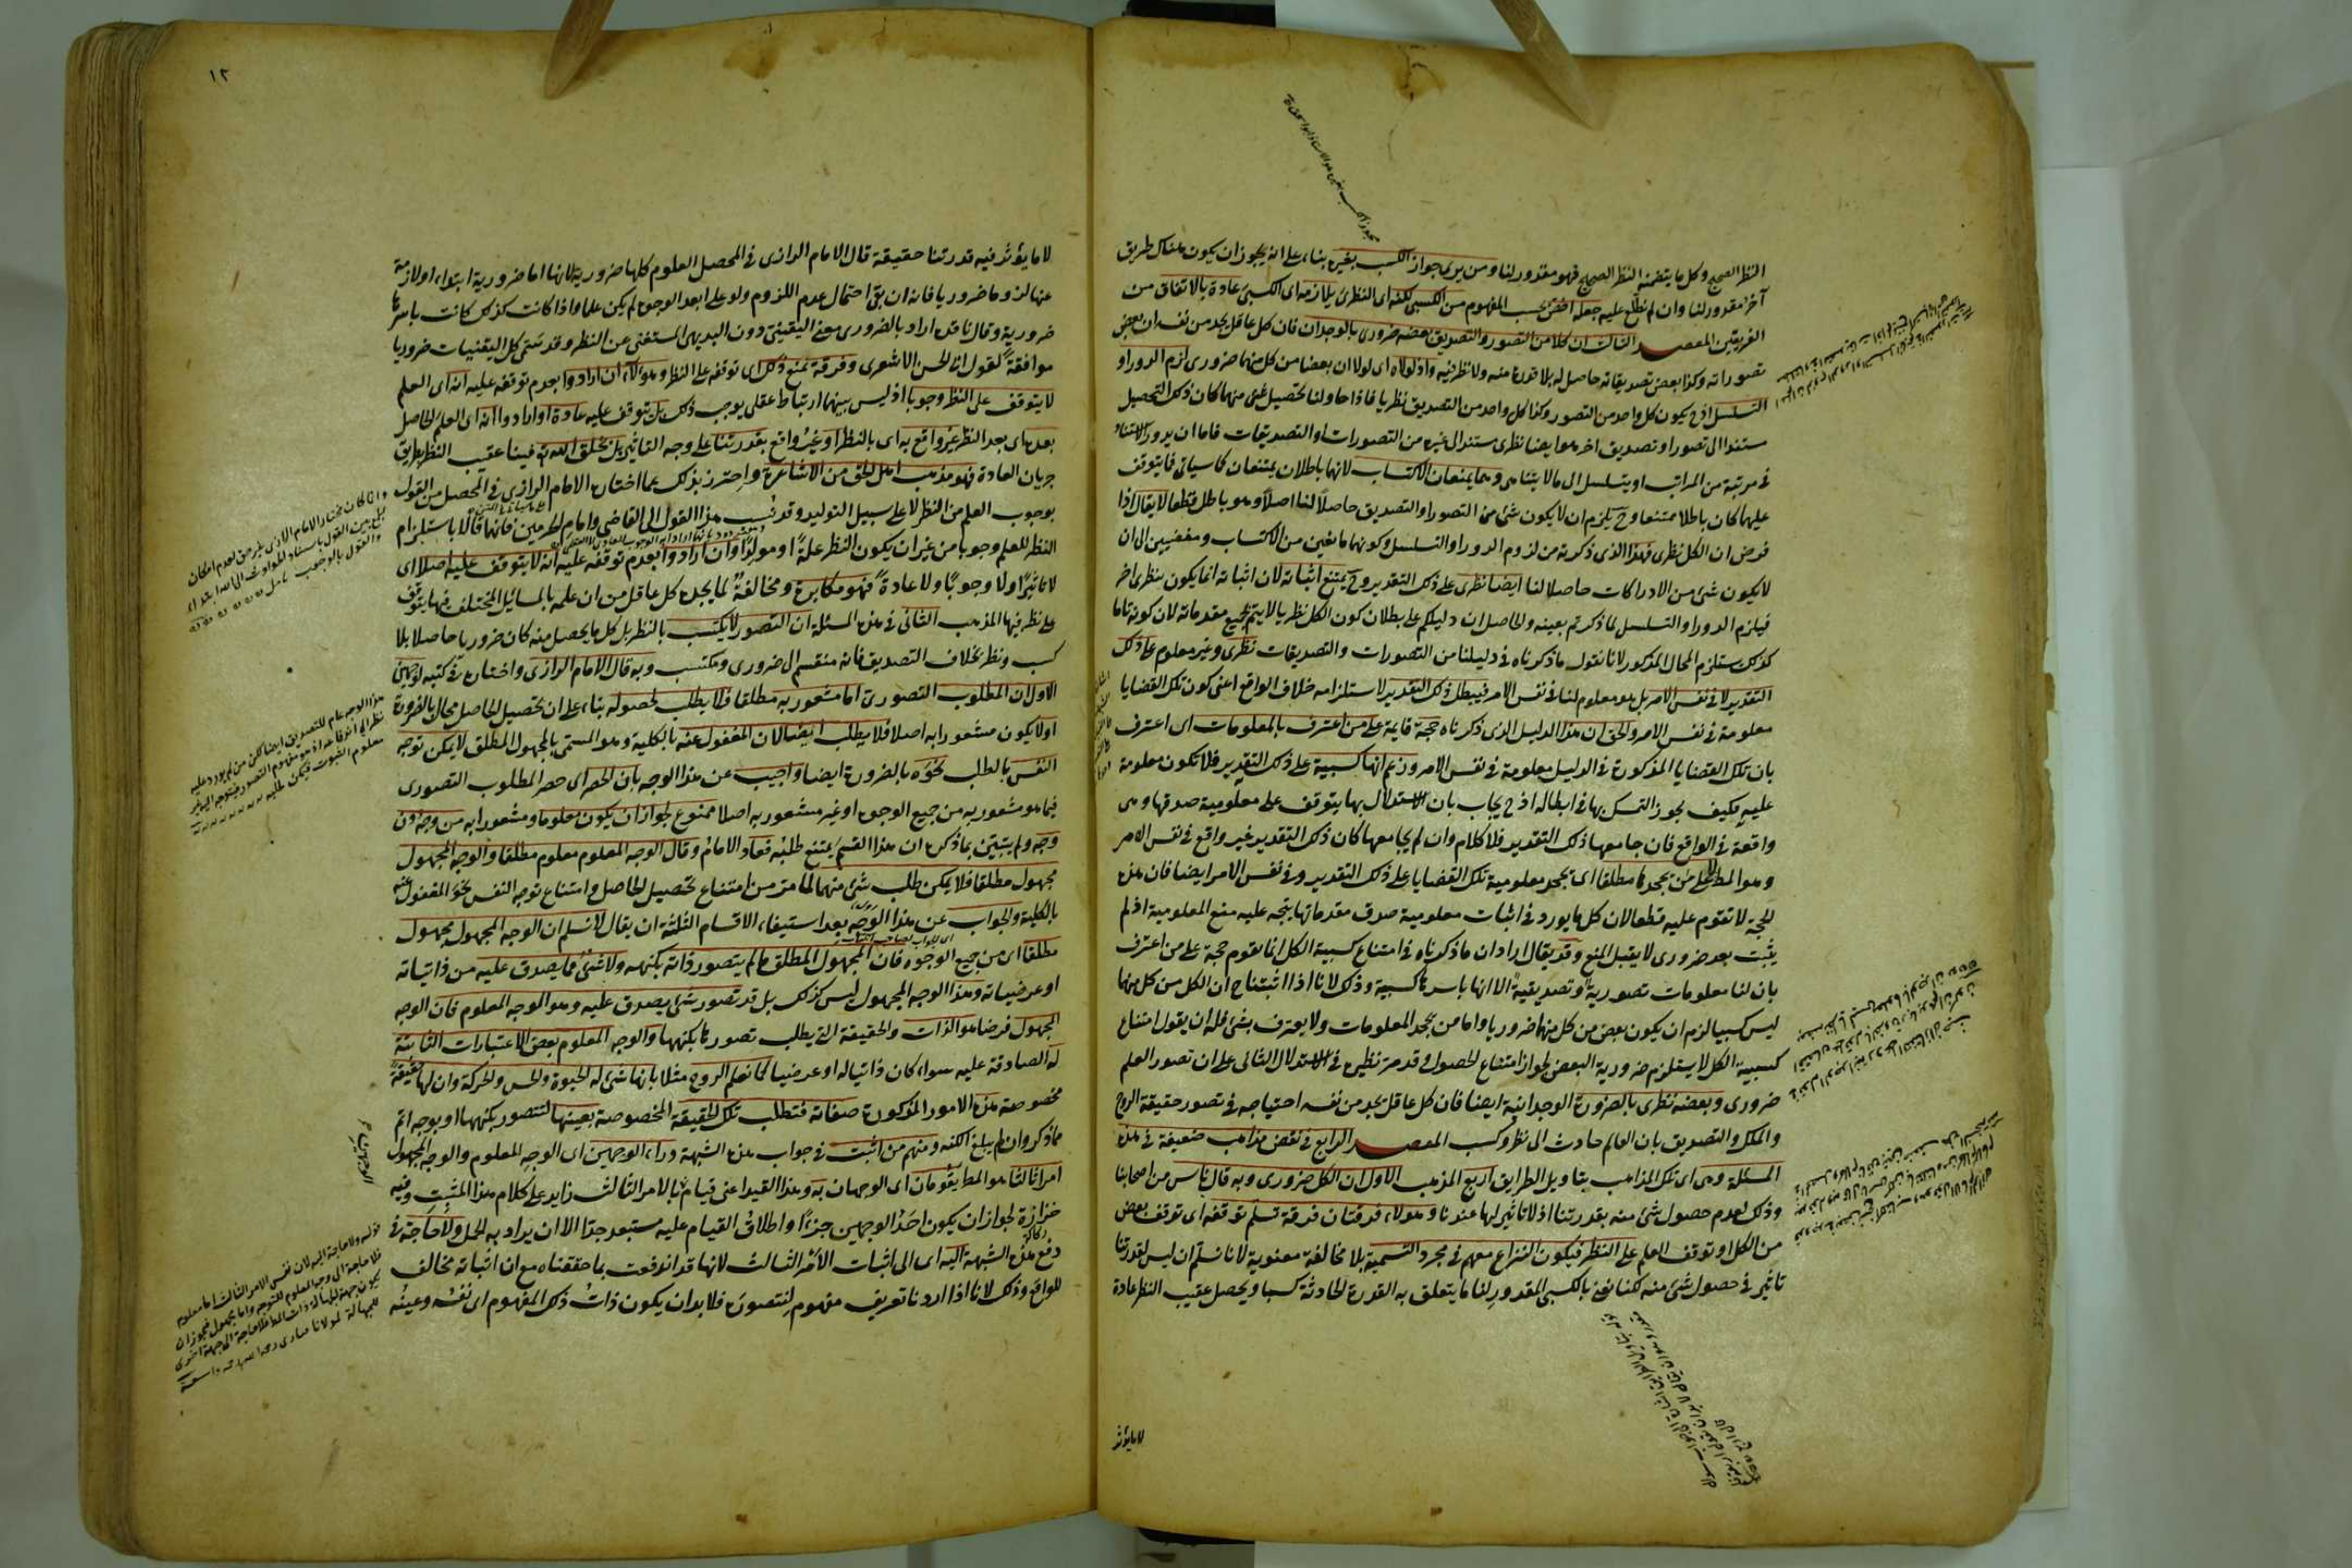 النظر الصحيح وكل ما يتضمنه النظر الصحيح فهو مقدور لنا ومن يرى جواز الكسب بغيره بناء على انه يجوز ان يكون هناك طريق
آخر مقدور لنا وان لم نطلع عليه جعله اخص بحسب المفهوم من الكسبى لكنه اى النظرى يلازمه اى الكسبى عادة بالاتفاق من
الفريقين المقصد الثالث ان كلا من التصور والتصديق بعضه ضرورى بالوجدان فان كل عاقل يجد من نفسه ان بعض
تصوراته وكذا بعض تصديقاته حاصل له بلا قدرة منه ولا نظر فيه واذ لولاه اى لولا ان بعضا من كل منهما ضرورى لزم الدور او
التسلسل اذ ح يكون كل واحد من التصور وكذا كل واحد من التصديق نظريا فاذا حاولنا تحصيل شئ منهما كان ذلك التحصيل
مستندا الى تصور او تصديق اخر هو ايضا نظرى مستند الى غيره من التصورات او التصديقات فاما ان يدور الاستناد
فى مرتبة من المراتب او يتسلسل الى ما لا يتناهى وهما يمنعان الاكتساب لانهما باطلان يمتنعان كما سياتى فما يتوقف
عليهما كان باطلا ممتنعا وح يلزم ان لا يكون شئ من التصور والتصديق حاصلا لنا اصلا وهو باطل قطعا لا يقال اذا
فرض ان الكل نظرى فهذا الذى ذكرته من لزوم الدور او التسلسل وكونهما مانعين من الاكتساب ومفضيين الى ان
لا يكون شئ من الادراكات حاصلا لنا ايضا نظرى على ذلك التقدير وح يمتنع اثباته لان اثباته انما يكون بنظرى اخر
فيلزم الدور او التسلسل لما ذكرتم بعينه والحاصل ان دليلكم على بطلان كون الكل نظريا لا يتم بجميع مقدماته لان كونه تاما
كذلك يستلزم المحال المذكور لانا نقول ما ذكرناه فى دليلنا من التصورات والتصديقات نظرى وغير معلوم على ذلك
التقدير لا فى نفس الامر بل هو معلوم لنا فى نفس الامر فيبطل ذلك التقدير لاستلزامه خلاف الواقع اعنى كون تلك القضايا
معلومة فى نفس الامر والحق ان هذا الدليل الذى ذكرناه حجة قايمة على من اعترف بالمعلومات اى اعترف
بان تلك القضايا المذكورة فى الدليل معلومة فى نفس الامر وزعم انها كسبية على ذلك التقدير فلا تكون معلومة
عليه فكيف يجوز التمسك بها فى ابطاله اذ ح يجاب بان الاستدلال بها يتوقف على معلومية صدقها وهى
واقعة فى الواقع فان جامعها ذلك التقدير فلا كلام وان لم يجامعها كان ذلك التقدير غير واقع فى نفس الامر
وهو المط لا على من يجحدها مطلقا اى يجحد معلومية تلك القضايا على ذلك التقدير وفى نفس الامر ايضا فان هذه
الحجة لا تقوم عليه قطعا لان كل ما يورد فى اثبات معلومية صدق مقدماتها يتجه عليه منع المعلومية اذ لم
يثبت بعد ضرورى لا يقبل المنع وقد يقال اراد ان ما ذكرناه فى امتناع كسبية الكل انما تقوم حجة على من اعترف
بان لنا معلومات تصورية وتصديقية الا انها باسرها كسبية وذلك لانا اذا اثبتنا ح ان الكل من كل منهما
ليس كسبيا لزم ان يكون بعض من كل منهما ضروريا واما من يجحد المعلومات ولا يعترف بشئ فله ان يقول امتناع
كسبية الكل لا يستلزم ضرورية البعض لجواز امتناع الحصول وقد مر نظيره فى الاستدلال الثانى على ان تصور العلم
ضرورى وبعضه نظرى بالضرورة الوجدانية ايضا فان كل عاقل يجد من نفسه احتياجه فى تصور حقيقة الروح
والملك والتصديق بان العالم حادث الى نظر وكسب المقصد الرابع فى نقض مذاهب ضعيفة فى هذه
المسئلة وهى اى تلك المذاهب بتاويل الطرايق اربع المذهب الاول ان الكل ضرورى وبه قال ناس من اصحابنا
وذلك لعدم حصول شئ منه بقدرتنا اذ لا تاثير لها عندنا وهولاء فرقتان فرقة تسلم توقفه اى توقف بعض
من الكل او توقف العلم على النظر فيكون النزاع معهم فى مجرد التسمية بلا مخالفة معنوية لانا نسلم ان ليس لقدرتنا
تاثير فى حصول شئ منه لكنا نعنى بالكسبى المقدور لنا ما يتعلق به القدرة الحادثة كسبا ويحصل عقيب النظر عادة
لا ما يؤثر
١٢
لا ما يؤثر فيه قدرتنا حقيقة قال الامام الرازى فى المحصل العلوم كلها ضرورية لانها اما ضرورية ابتداء او لازمة
عنها لزوما ضروريا فانه ان بقى احتمال عدم اللزوم ولو على ابعد الوجوه لم يكن علما واذا كانت كذلك كانت باسرها
ضرورية وقال ناقده اراد بالضرورى معنى اليقينى دون البديهى المستغنى عن النظر وقد سمى كل اليقينيات ضروريا
موافقة لقول ابى الحسن الاشعرى وفرقة تمنع ذلك اى توقفه على النظر وهولاء ان ارادوا بعدم توقفه عليه انه اى العلم
لا يتوقف على النظر وجوبا اذ ليس بينهما ارتباط عقلى يوجب ذلك بل يتوقف عليه عادة او ارادوا انه اى العلم الحاصل
بعده اى بعد النظر غير واقع به اى بالنظر او غير واقع بقدرتنا على وجه التاثير بل بخلق الله تع فينا عقيب النظر بطريق
جريان العادة فهو مذهب اهل الحق من الاشاعرة واحترز بذلك عما اختاره الامام الرازى فى المحصل من القول
بوجوب العلم من النظر لا على سبيل التوليد وقد نسب هذا القول الى القاضى وامام الحرمين فانهما قالا باستلزام
النظر للعلم وجوبا من غير ان يكون النظر علة او مولدا وان ارادوا بعدم توقفه عليه انه لا يتوقف عليه اصلا اى
لا تاثيرا ولا وجوبا ولا عادة فهو مكابرة ومخالفة لما يجده كل عاقل من ان علمه بالمسائل المختلف فيها يتوقف
على نظره فيها المذهب الثانى فى هذه المسئلة ان التصور لا يكتسب بالنظر بل كل ما يحصل منه كان ضروريا حاصلا بلا
كسب ونظر بخلاف التصديق فانه منقسم الى ضرورى ومكتسب وبه قال الامام الرازى واختاره فى كتبه لوجهين
الاول ان المطلوب التصورى اما مشعور به مطلقا فلا يطلب لحصوله بناء على ان تحصيل الحاصل محال بالضرورة
او لا يكون مشعورا به اصلا فلا يطلب ايضا لان المغفول عنه بالكلية وهو المسمى بالمجهول المطلق لا يمكن توجه
النفس بالطلب نحوه بالضرورة ايضا واجيب عن هذا الوجه بان الحصر اى حصر المطلوب التصورى
فيما هو مشعور به من جميع الوجوه او غير مشعور به اصلا ممنوع لجواز ان يكون معلوما ومشعورا به من وجه دون
وجه ولم يتبين بما ذكره ان هذا القسم يمتنع طلبه فعاد الامام وقال الوجه المعلوم معلوم مطلقا والوجه المجهول
مجهول مطلقا فلا يمكن طلب شئ منهما لما مر من امتناع تحصيل الحاصل وامتناع توجه النفس نحو المغفول عنه
بالكلية والجواب عن هذا الوجه بعد استيفاء الاقسام الثلثة ان يقال لا نسلم ان الوجه المجهول مجهول
مطلقا اى من جميع الوجوه فان المجهول المطلق ما لم يتصور ذاته بكنهه ولا شئ مما يصدق عليه من ذاتياته
او عرضياته وهذا الوجه المجهول ليس كذلك بل قد تصور شئ يصدق عليه وهو الوجه المعلوم فان الوجه
المجهول فرضا هو الذات والحقيقة التى يطلب تصورها بكنهها والوجه المعلوم بعض الاعتبارات الثابتة
له الصادقة عليه سواء كان ذاتيا له او عرضيا كما نعلم الروح مثلا بانها شئ له الحيوة والحس والحركة وان لها حقيقة
مخصوصة هذه الامور المذكورة صفاته فتطلب تلك الحقيقة المخصوصة بعينها لتتصور بكنهها او بوجه اتم
مما ذكر وان لم يبلغ الكنه ومنهم من اثبت فى جواب هذه الشبهة وراء الوجهين اى الوجه المعلوم والوجه المجهول
امرا ثالثا هو المط يقومان اى الوجهان به وهذا القيد اعنى قيامهما بالامر الثالث زايد على كلام هذا المثبت وفيه
حزازة لجواز ان يكون احد الوجهين جزءا واطلاق القيام عليه مستبعد جدا الا ان يراد به الحمل ولا حاجة فى
دفع هذه الشبهة اليه اى الى اثبات الامر الثالث لانها قد اندفعت بما حققناه مع ان اثباته مخالف
للواقع وذلك لانا اذا اردنا تعريف مفهوم لنتصوره فلا بد ان يكون ذات ذلك المفهوم اى نفسه وعينه